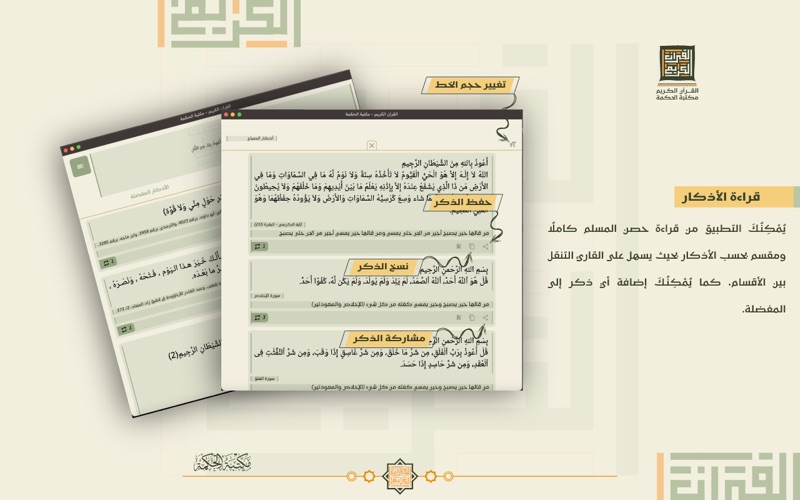 القرآن الكريم
مكتبة الحكمة
قراءة الأذكار
يُمْكِنُكَ التطبيق من قراءة حصن المسلم كاملًا
ومقسم بحسب الأذكار بحيث يسهل على القارئ التنقل
بين الأقسام، كما يُمْكِنُكَ إضافة أي ذكر إلى
المفضلة.
تغيير حجم الخط
القرآن الكريم - مكتبة الحكمة
أذكار المسلم
أَعُوذُ بِاللهِ مِنَ الشَّيْطَانِ الرَّجِيمِ
اللهُ لاَ إِلَهَ إِلاَّ هُوَ الْحَيُّ الْقَيُّومُ لاَ تَأْخُذُهُ سِنَةٌ وَلاَ نَوْمٌ لَّهُ مَا فِي السَّمَاوَاتِ وَمَا فِي
الأَرْضِ مَن ذَا الَّذِي يَشْفَعُ عِنْدَهُ إِلاَّ بِإِذْنِهِ يَعْلَمُ مَا بَيْنَ أَيْدِيهِمْ وَمَا خَلْفَهُمْ وَلاَ يُحِيطُونَ
شَاء وَسِعَ كُرْسِيُّهُ السَّمَاوَاتِ وَالأَرْضَ وَلاَ يَؤُودُهُ حِفْظُهُمَا وَهُوَ
حفظ الذكر
من قالها حين يصبح أجير من الجن حتى يمسى ومن قالها حين يمسى أجير من الجن حتى يصبح
نسخ الذكر
بِسْمِ اللهِ الرَّحْمنِ الرَّحِيم
قُلْ هُوَ ٱللَّهُ أَحَدٌ، ٱللَّهُ ٱلصَّمَدُ، لَمْ يَلِدْ وَلَمْ يُولَدْ، وَلَمْ يَكُن لَّهُۥ كُفُوًا أَحَدٌۢ.
سورة الإخلاص
من قالها حين يصبح وحين يمسى كفته من كل شىء (الإخلاص والمعوذتين)
مشاركة الذكر
بِسْمِ اللهِ الرَّحْمنِ
قُلْ أَعُوذُ بِرَبِّ ٱلْفَلَقِ، مِن شَرِّ مَا خَلَقَ، وَمِن شَرِّ غَاسِقٍ إِذَا وَقَبَ، وَمِن شَرِّ ٱلنَّفَّٰثَٰتِ فِى
ٱلْعُقَدِ، وَمِن شَرِّ حَاسِدٍ إِذَا حَسَدَ.
سورة الفلق
من قالها حين يصبح وحين يمسى كفته من كل شىء (الإخلاص والمعوذتين)
مكتبة الحكمة